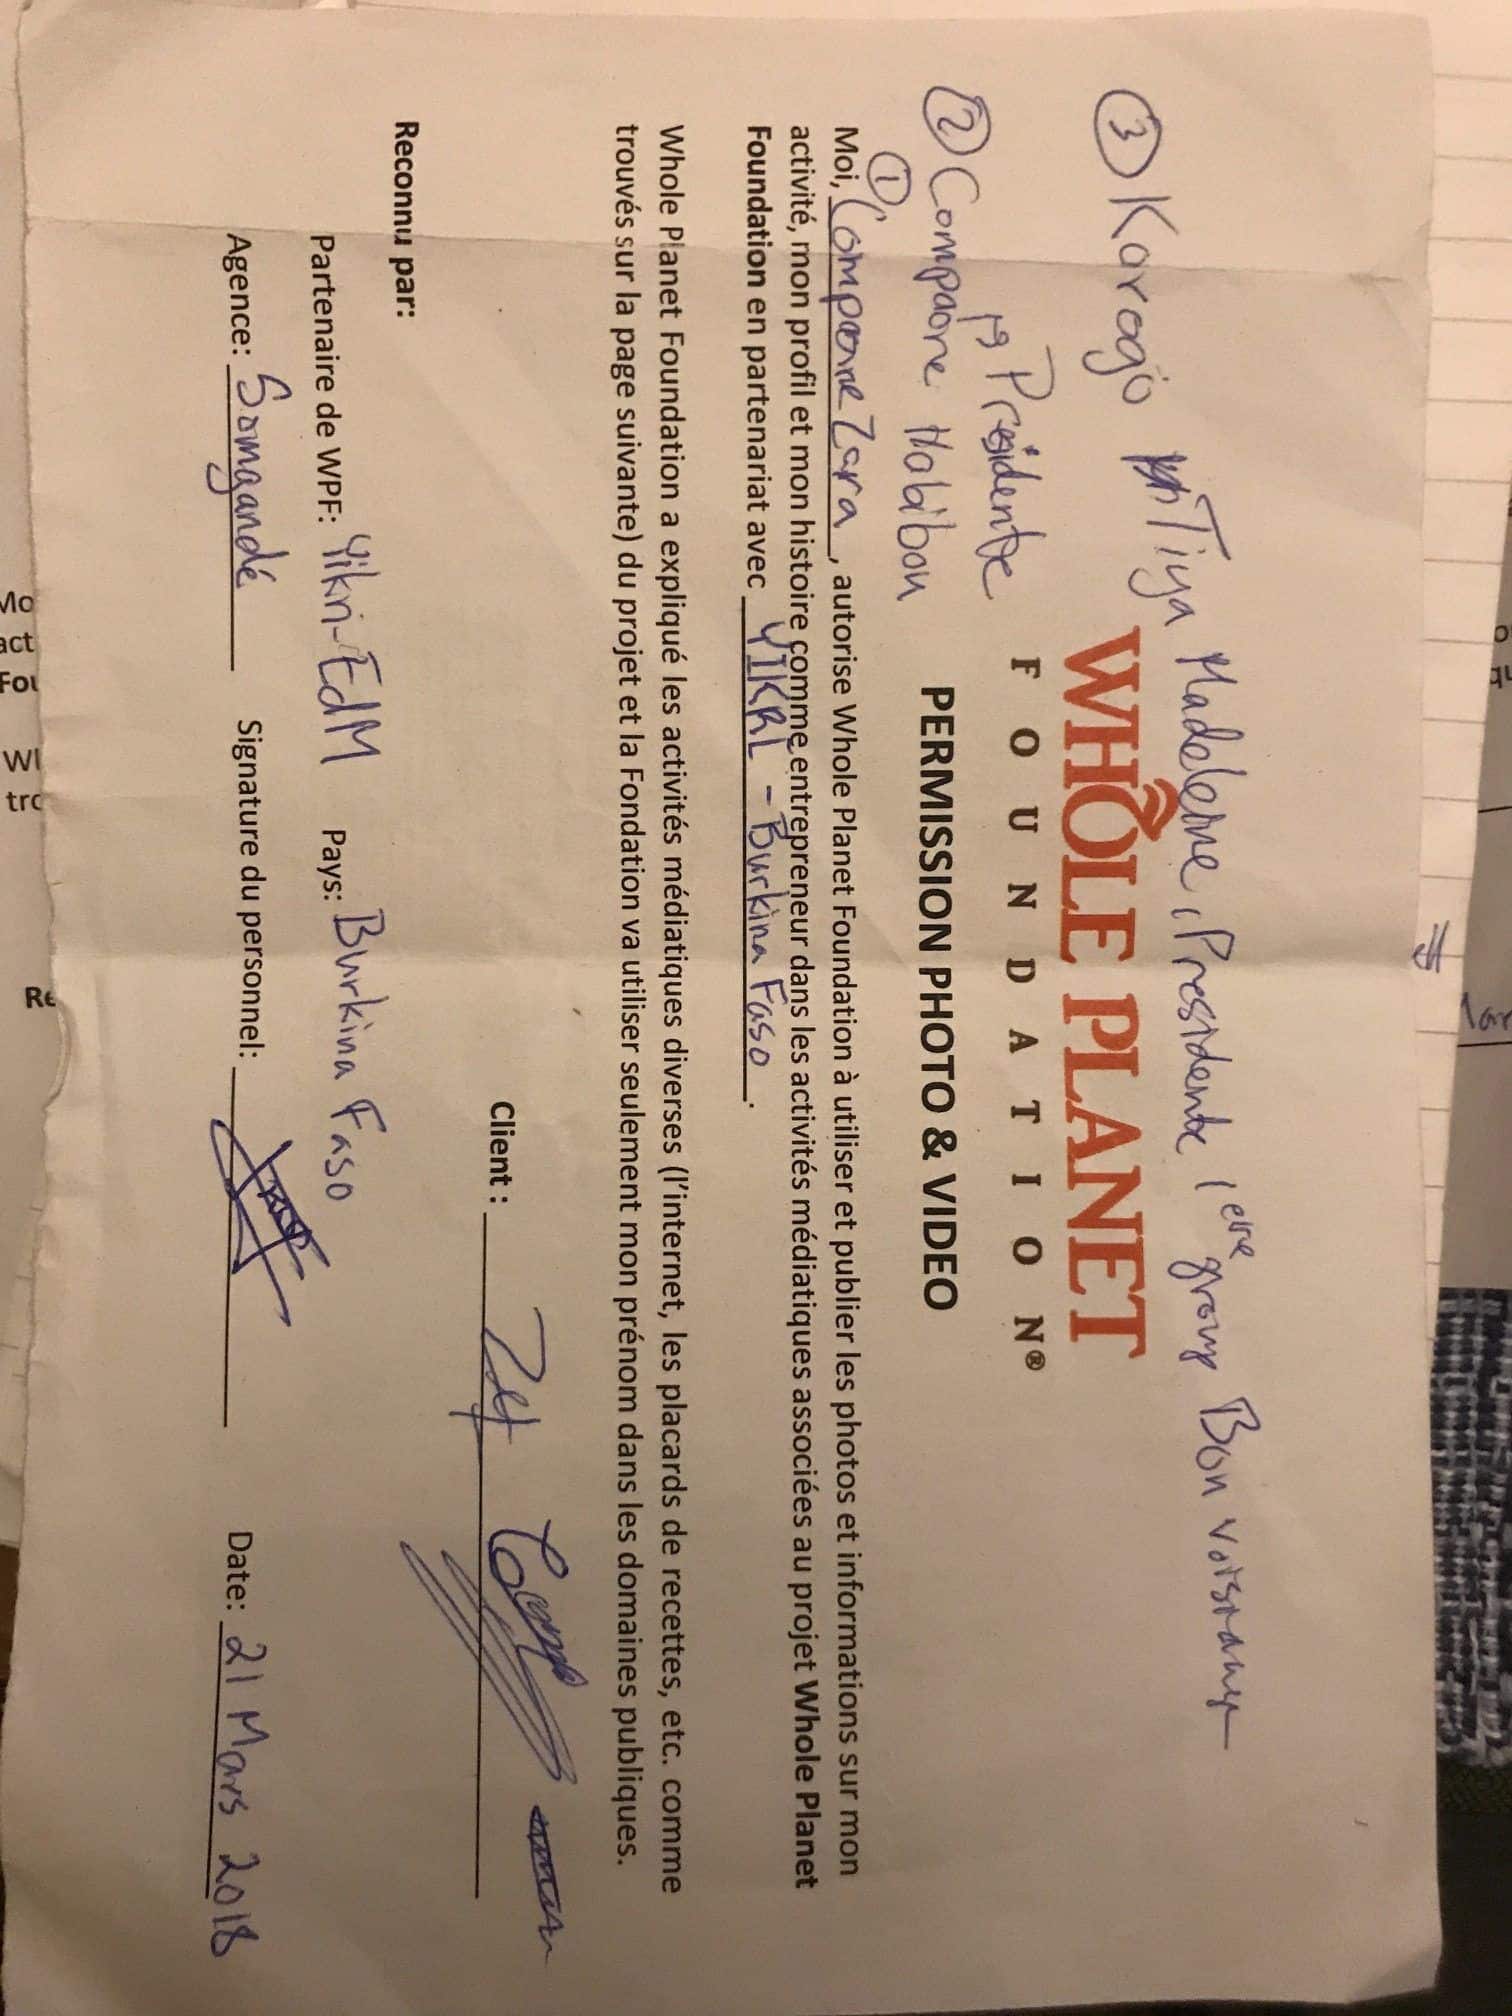 ③ Karogo Tiya Madeleine, Presidente 1ere group Bon voisinage
WHOLE PLANET
FOUNDATION®
↳ Présidente
② Compaore Habibou
PERMISSION PHOTO & VIDEO
①
Moi, Compaore Zara, autorise Whole Planet Foundation à utiliser et publier les photos et informations sur mon
activité, mon profil et mon histoire comme entrepreneur dans les activités médiatiques associées au projet Whole Planet
Foundation en partenariat avec YIKRI - Burkina Faso.
Whole Planet Foundation a expliqué les activités médiatiques diverses (l'internet, les placards de recettes, etc. comme
trouvés sur la page suivante) du projet et la Fondation va utiliser seulement mon prénom dans les domaines publiques.
Client :
Reconnu par:
Partenaire de WPF: Yikri-EdM Pays: Burkina Faso
Agence: Somgandé Signature du personnel: Date: 21 Mars 2018
Mo
act
Fou
Wl
tro
Re